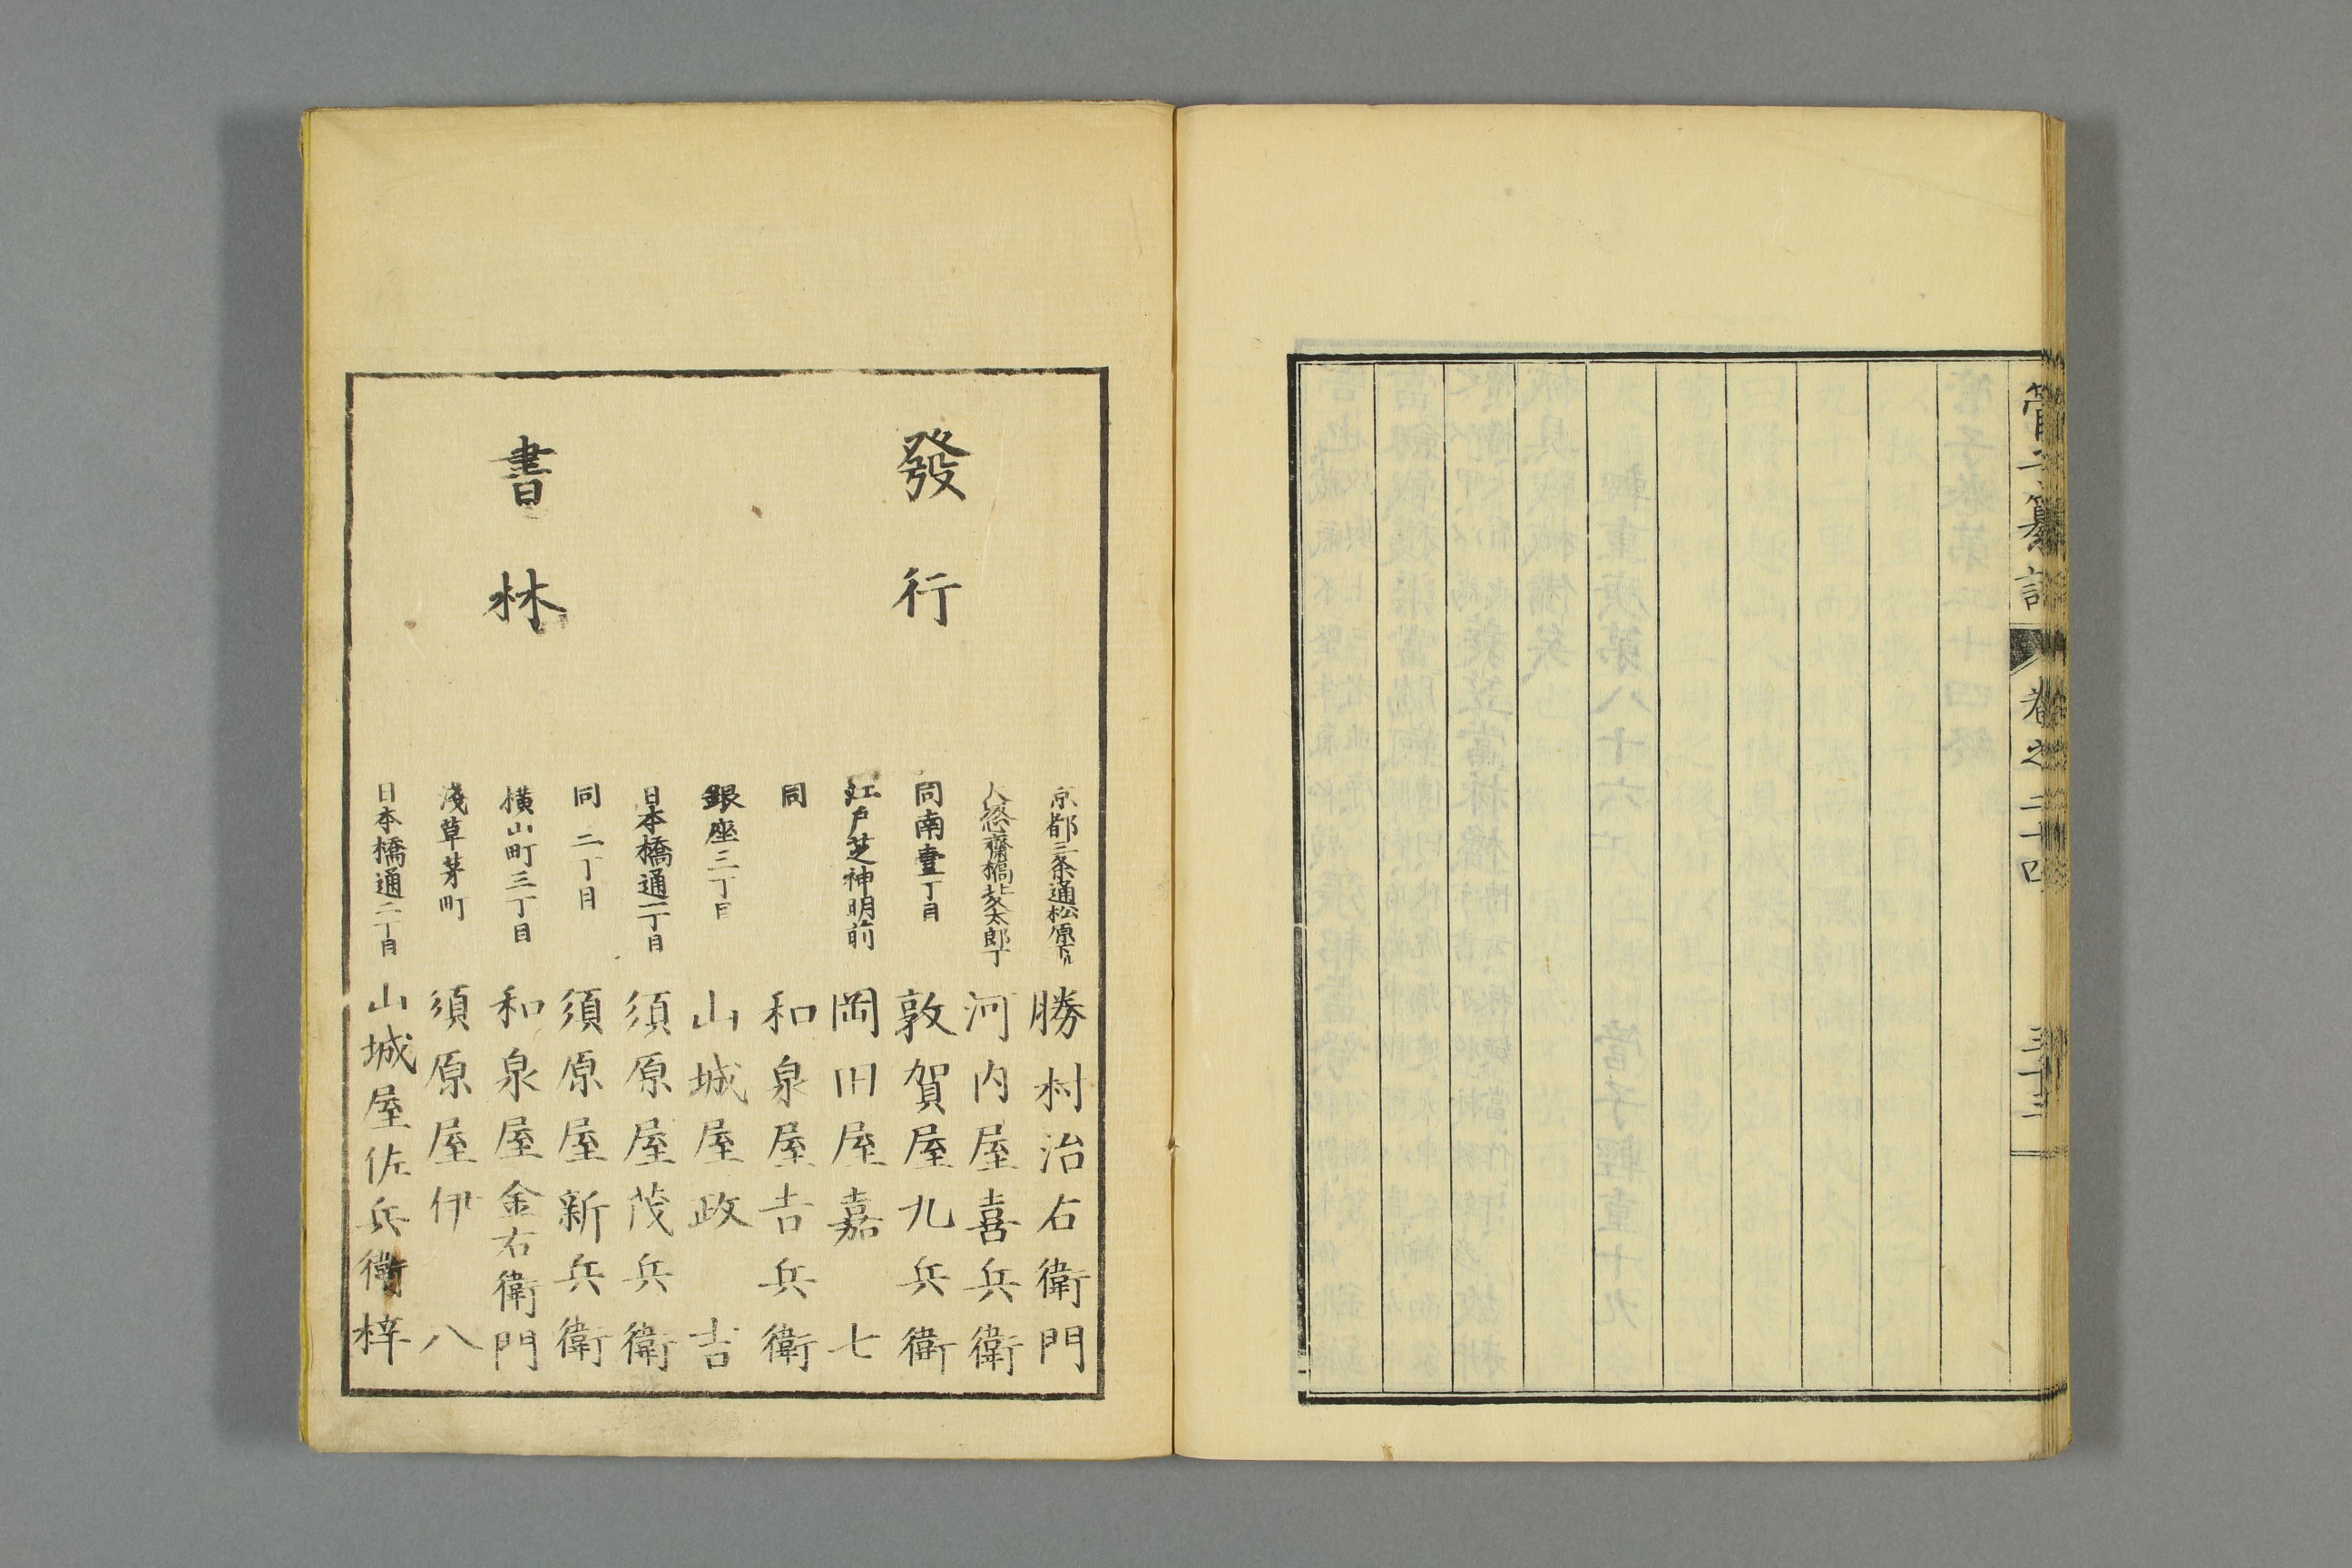 管子纂詁
卷之二十四
三十三
發行
書林
京都三条通松原下
勝村治右衛門
心斎橋北久太郎丁
河内屋喜兵衛
同南壹丁目
敦賀屋九兵衛
江戸芝神明前
岡田屋嘉七
同
和泉屋吉兵衛
銀座三丁目
山城屋政吉
日本橋通一丁目
須原屋茂兵衛
同二丁目
須原屋新兵衛
横山町三丁目
和泉屋金右衛門
淺草茅町
須原屋伊八
日本橋通二丁目
山城屋佐兵衛梓